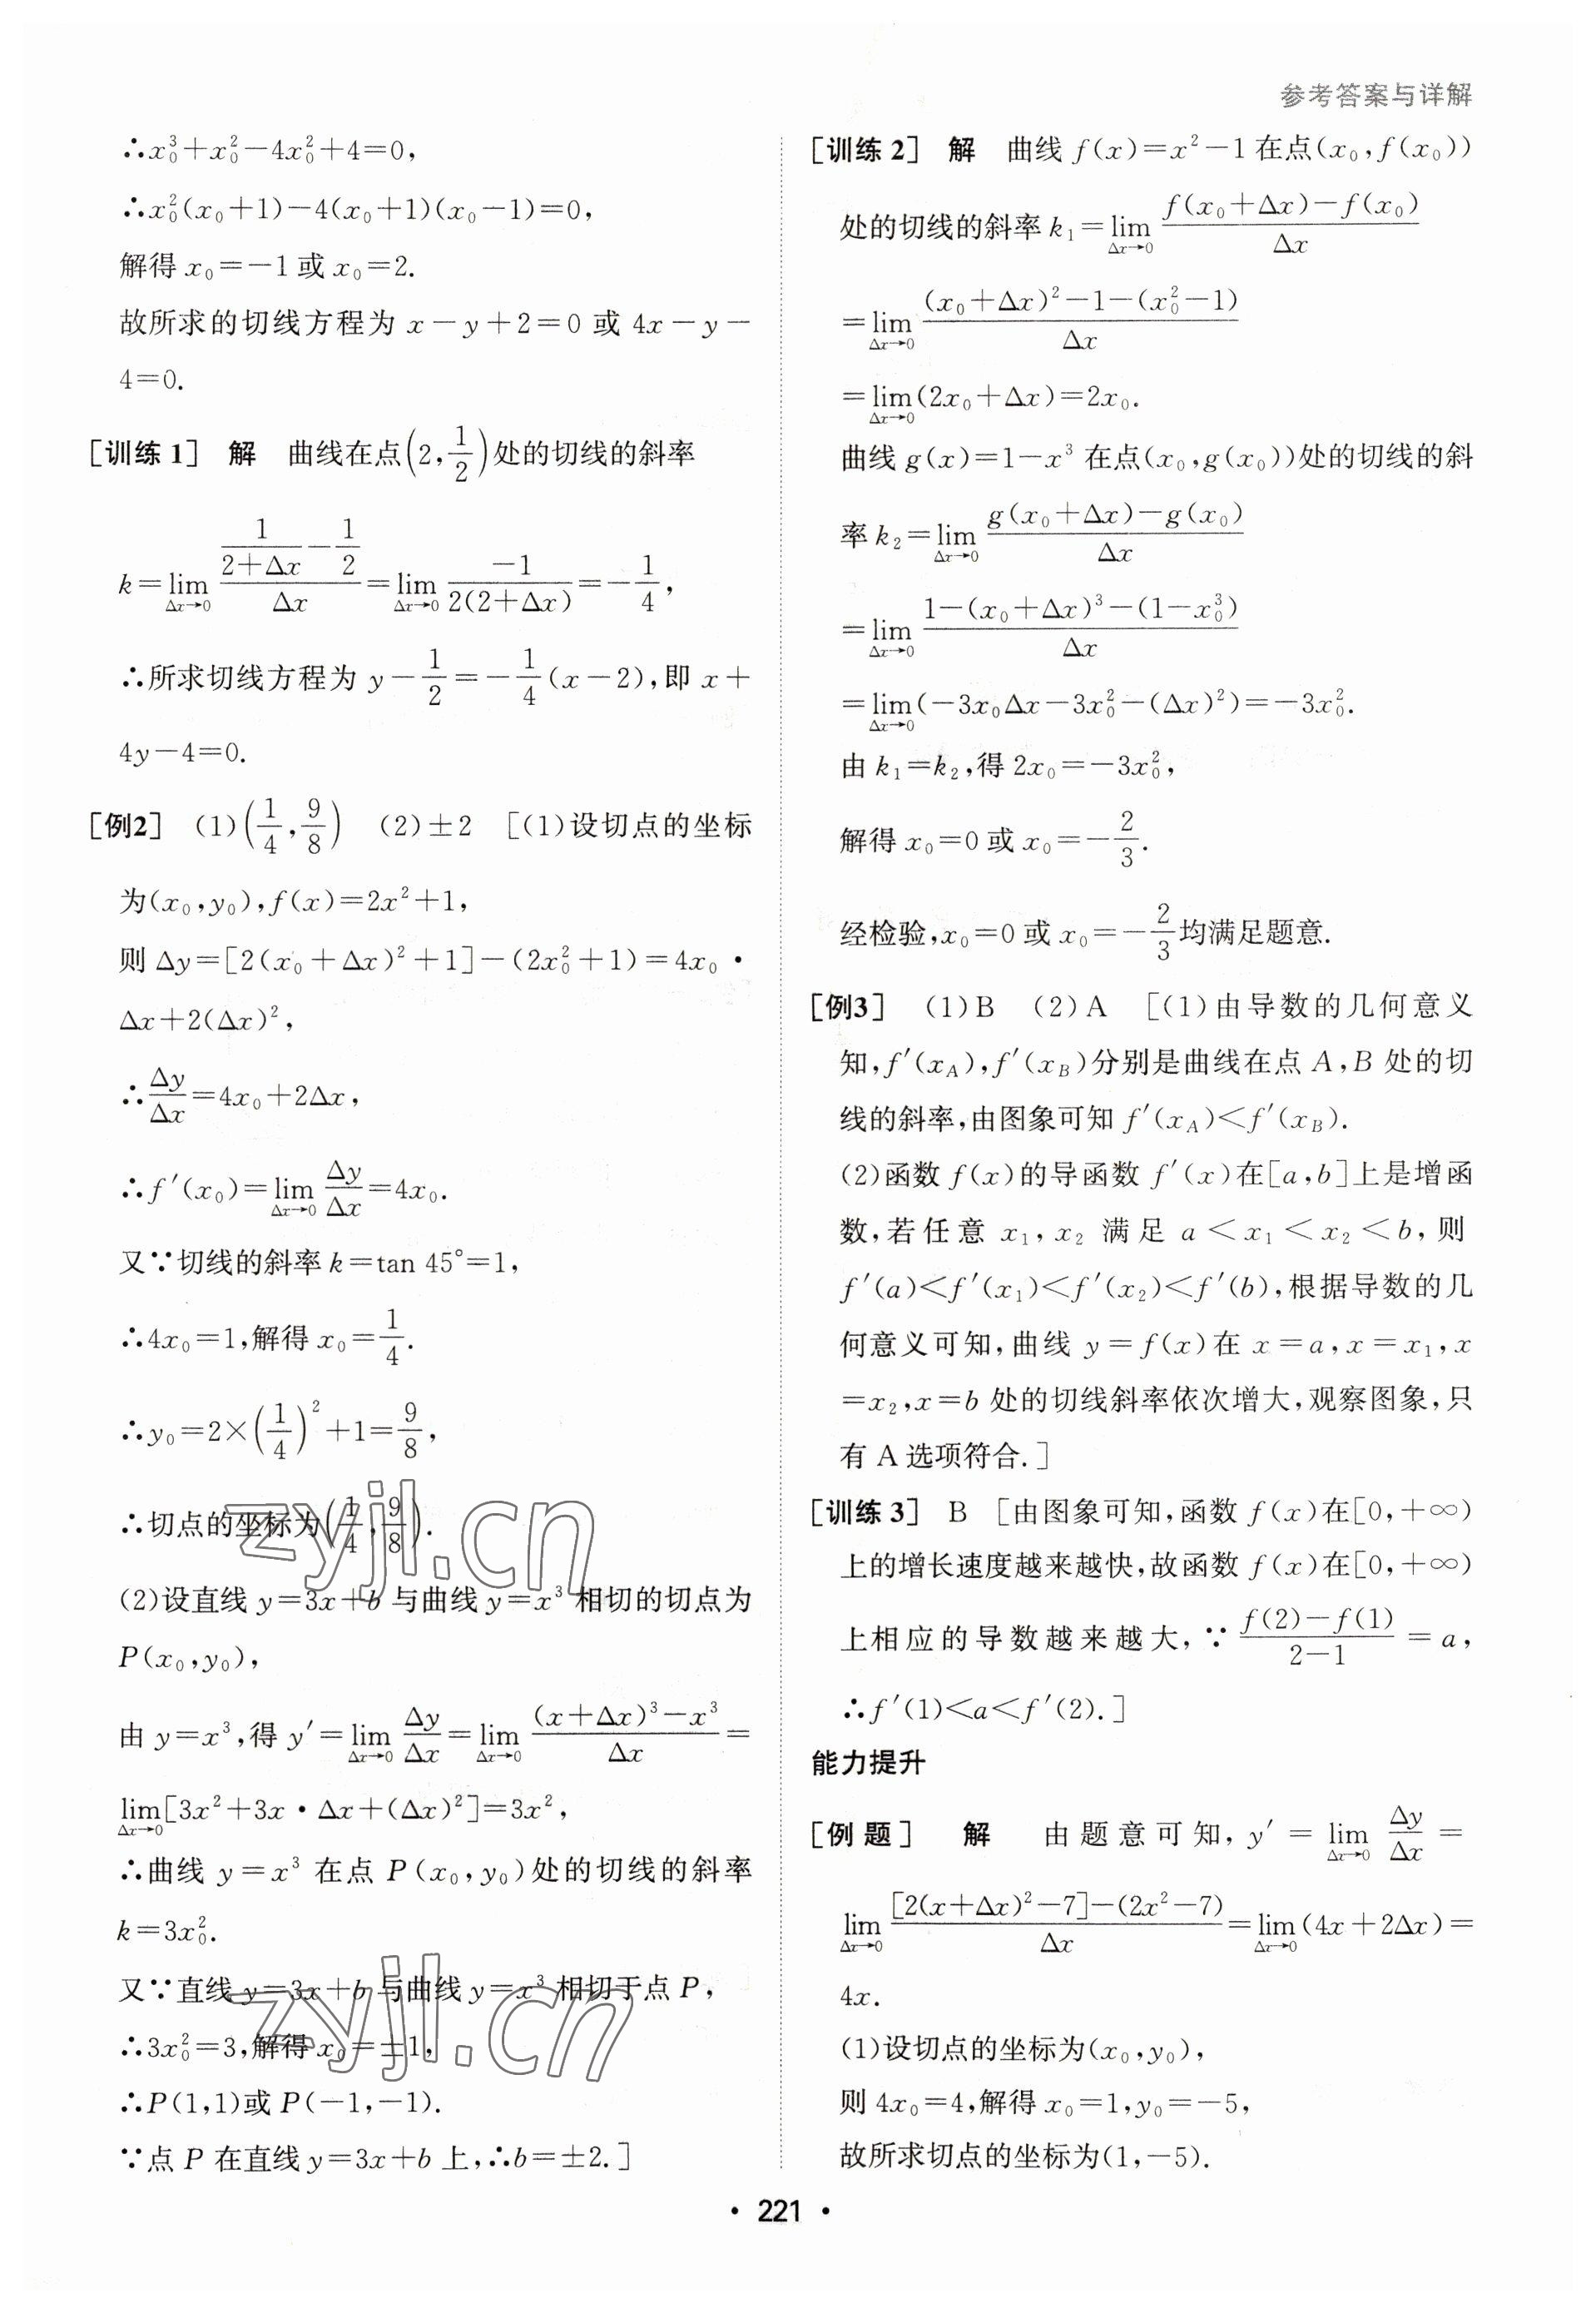 参考答案与详解
∴x₀³+x₀²−4x₀²+4=0,
∴x₀²(x₀+1)−4(x₀+1)(x₀−1)=0,
解得 x₀=−1 或 x₀=2.
故所求的切线方程为 x−y+2=0 或 4x−y−
4=0.
[训练1] 解 曲线在点(2,1/2)处的切线的斜率
k=lim(Δx→0) (1/(2+Δx)−1/2)/Δx=lim(Δx→0) −1/(2(2+Δx))=−1/4,
∴所求切线方程为 y−1/2=−1/4(x−2),即 x+
4y−4=0.
[例2] (1)(1/4,9/8) (2)±2 [(1)设切点的坐标
为(x₀,y₀),f(x)=2x²+1,
则 Δy=[2(x₀+Δx)²+1]−(2x₀²+1)=4x₀·
Δx+2(Δx)²,
∴Δy/Δx=4x₀+2Δx,
∴f′(x₀)=lim(Δx→0) Δy/Δx=4x₀.
又∵切线的斜率 k=tan 45°=1,
∴4x₀=1,解得 x₀=1/4.
∴y₀=2×(1/4)²+1=9/8,
∴切点的坐标为(1/4,9/8).
(2)设直线 y=3x+b 与曲线 y=x³ 相切的切点为
P(x₀,y₀),
由 y=x³,得 y′=lim(Δx→0) Δy/Δx=lim(Δx→0) ((x+Δx)³−x³)/Δx=
lim(Δx→0)[3x²+3x·Δx+(Δx)²]=3x²,
∴曲线 y=x³ 在点 P(x₀,y₀)处的切线的斜率
k=3x₀².
又∵直线 y=3x+b 与曲线 y=x³ 相切于点 P,
∴3x₀²=3,解得 x₀=±1,
∴P(1,1)或 P(−1,−1).
∵点 P 在直线 y=3x+b 上,∴b=±2.]
[训练2] 解 曲线 f(x)=x²−1 在点(x₀,f(x₀))
处的切线的斜率 k₁=lim(Δx→0) (f(x₀+Δx)−f(x₀))/Δx
=lim(Δx→0) ((x₀+Δx)²−1−(x₀²−1))/Δx
=lim(Δx→0)(2x₀+Δx)=2x₀.
曲线 g(x)=1−x³ 在点(x₀,g(x₀))处的切线的斜
率 k₂=lim(Δx→0) (g(x₀+Δx)−g(x₀))/Δx
=lim(Δx→0) (1−(x₀+Δx)³−(1−x₀³))/Δx
=lim(Δx→0)(−3x₀Δx−3x₀²−(Δx)²)=−3x₀².
由 k₁=k₂,得 2x₀=−3x₀²,
解得 x₀=0 或 x₀=−2/3.
经检验,x₀=0 或 x₀=−2/3均满足题意.
[例3] (1)B (2)A [(1)由导数的几何意义
知,f′(x_A),f′(x_B)分别是曲线在点 A,B 处的切
线的斜率,由图象可知 f′(x_A)<f′(x_B).
(2)函数 f(x)的导函数 f′(x)在[a,b]上是增函
数,若任意 x₁,x₂ 满足 a<x₁<x₂<b,则
f′(a)<f′(x₁)<f′(x₂)<f′(b),根据导数的几
何意义可知,曲线 y=f(x)在 x=a,x=x₁,x
=x₂,x=b 处的切线斜率依次增大,观察图象,只
有 A 选项符合.]
[训练3] B [由图象可知,函数 f(x)在[0,+∞)
上的增长速度越来越快,故函数 f(x)在[0,+∞)
上相应的导数越来越大,∵(f(2)−f(1))/(2−1)=a,
∴f′(1)<a<f′(2).]
能力提升
[例题] 解 由题意可知,y′=lim(Δx→0) Δy/Δx=
lim(Δx→0) ([2(x+Δx)²−7]−(2x²−7))/Δx=lim(Δx→0)(4x+2Δx)=
4x.
(1)设切点的坐标为(x₀,y₀),
则 4x₀=4,解得 x₀=1,y₀=−5,
故所求切点的坐标为(1,−5).
zyjl.cn
zyjl.cn
·221·